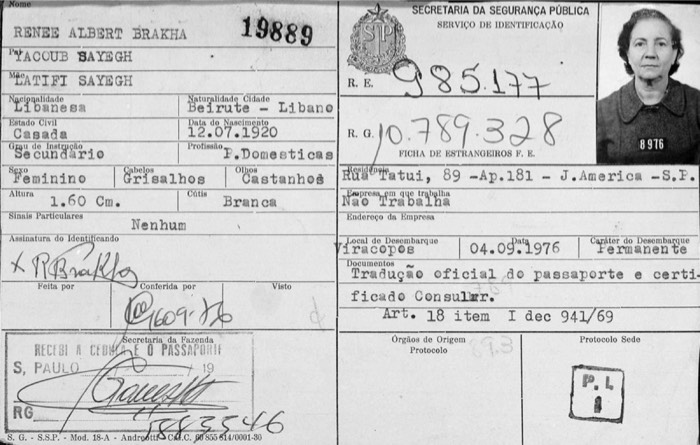 Nome
RENEE ALBERT BRAKHA 19889
Pai
YACOUB SAYEGH
Mãe
LATIFI SAYEGH
Nacionalidade Naturalidade Cidade
Libanesa Beirute - Libano
Estado Civil Data do Nascimento
Casada 12.07.1920
Grau de Instrução Profissão
Secundário P.Domesticas
Sexo Cabelos Olhos
Feminino Grisalhos Castanhos
Altura Cútis
1.60 Cm. Branca
Sinais Particulares
Nenhum
Assinatura do Identificando
x RBrakha
Feita por Conferida por Visto
Secretaria da Fazenda
RECEBI A CEDULA E O PASSAPORTE
S, PAULO 19
RG
S. G. - S.S.P. - Mod. 18-A -
SECRETARIA DA SEGURANÇA PÚBLICA
SERVIÇO DE IDENTIFICAÇÃO
SP
R. E. 985.177
R. G. 10.789.328
FICHA DE ESTRANGEIROS F. E.
8976
Residência
Rua Tatui, 89 -Ap.181 - J.America -S.P.
Empresa em que trabalha
Não Trabalha
Endereço da Empresa
Local de Desembarque Data Caráter do Desembarque
Viracopos 04.09.1976 Permanente
Documentos
Tradução oficial do passaporte e certi-
ficado Consular.
Art. 18 item I dec 941/69
Órgãos de Origem Protocolo Sede
Protocolo
P.I.
1